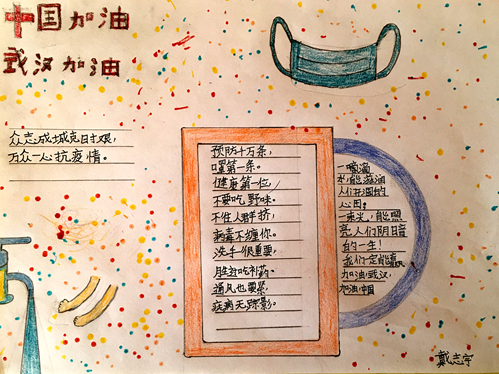 中国加油
武汉加油
众志成城克时艰，
万众一心抗疫情。
预防十万条，
口罩第一条。
健康第一位，
不要吃野味。
不往人群挤，
病毒不缠你。
洗手很重要，
胜过吃补药。
通风也要紧，
疾病无踪影。
一滴
水，能滋润
人们干涸的
心田。
一束光，能照
亮人们阴暗
的一生！
我们一定能赢
加油武汉，
加油中国
戴志宇